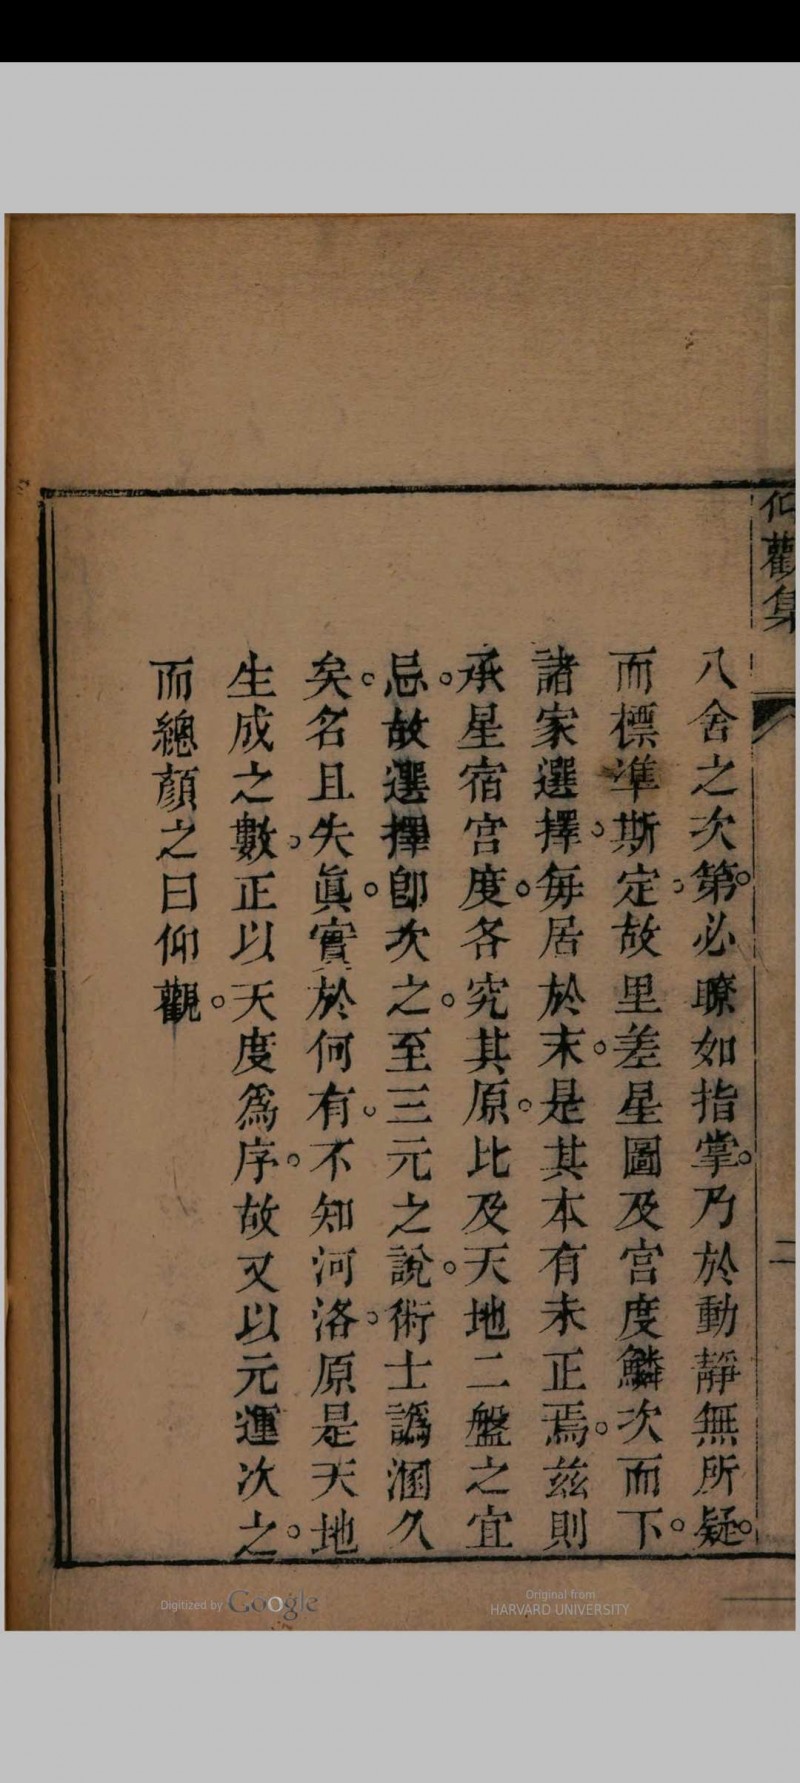 仰觀集
二
八舍之次第。必暸如指掌。乃於動靜無所疑。
而標準斯定。故里差星圖及宮度鱗次而下。
諸家選擇。每居於末。是其本有未正焉。茲則
承星宿宮度。各究其原。比及天地二盤之宜
忌。故選擇卽次之。至三元之說。術士譌溷久
矣。名且失眞。實於何有。不知河洛。原是天地
生成之數。正以天度爲序。故又以元運次之。
而總顏之曰仰觀。
Digitized by Google
Original from
HARVARD UNIVERSITY